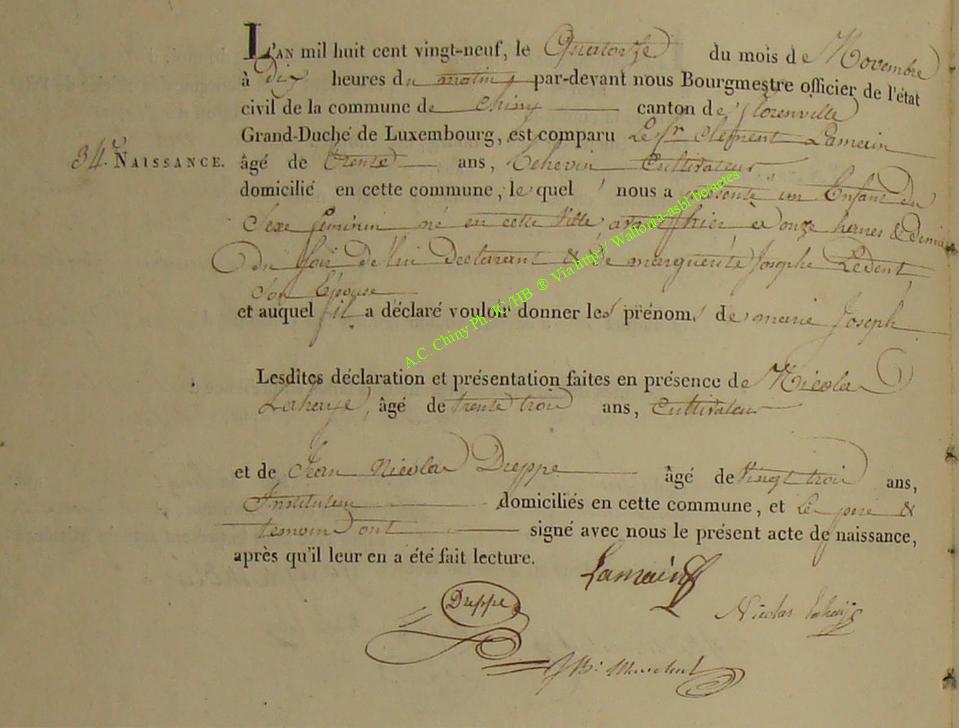 L'AN mil huit cent vingt-neuf, le Quatorze du mois de Novembre
à Dix heures du matin, par-devant nous Bourgmestre officier de l'état
civil de la commune de Chiny canton de florenville
Grand-Duché de Luxembourg, est comparu Le Sr. Clement Lamain
34. NAISSANCE. âgé de trente ans, Echevin Cultivateur
domicilié en cette commune, le quel nous a présenté un Enfant du
Sexe feminin né en cette Ville hier à onze heures & demie
du soir de lui declarant & de marguerite Josephe Ledent
son Epouse
et auquel il a déclaré vouloir donner les prénoms de marie Joseph
Lesdites déclaration et présentation faites en présence de Nicolas
Lahaye, âgé de trente trois ans, Cultivateur
et de Jean Nicolas Dreppe âgé de vingt trois ans,
Instituteur domiciliés en cette commune, et Le pere &
temoins ont signé avec nous le présent acte de naissance,
après qu'il leur en a été fait lecture.
Lamain
Dreppe
Nicolas Lahaye
A.C. Chiny Photo HB ® Via http// Wallonia-asbl.be/actes